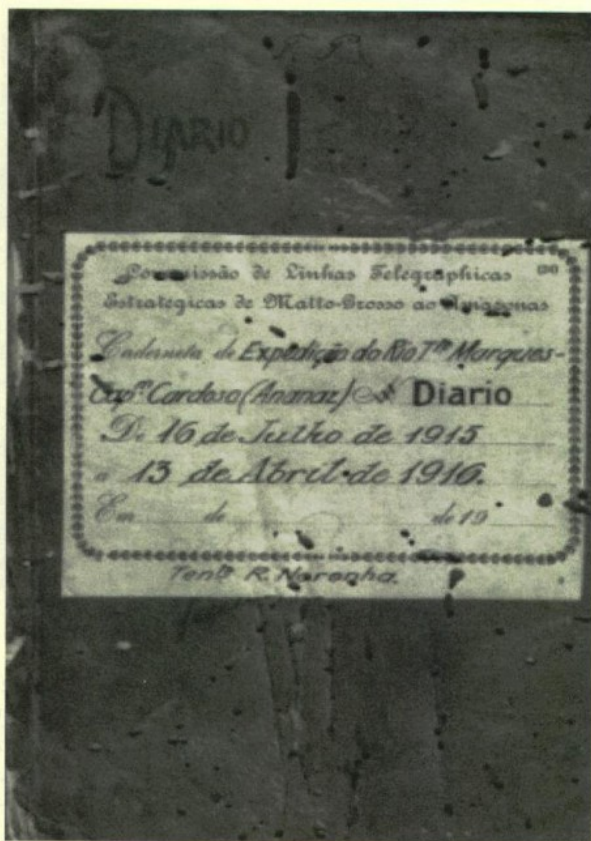 DIARIO
Commissão de Linhas Telegraphicas
Estrategicas de Matto-Grosso ao Amazonas
Caderneta de Expedição do Rio Tte Marques-
Capm. Cardoso (Ananaz) Diario
De 16 de Julho de 1915
a 13 de Abril de 1916.
Em de de 19
Tente R. Noronha.